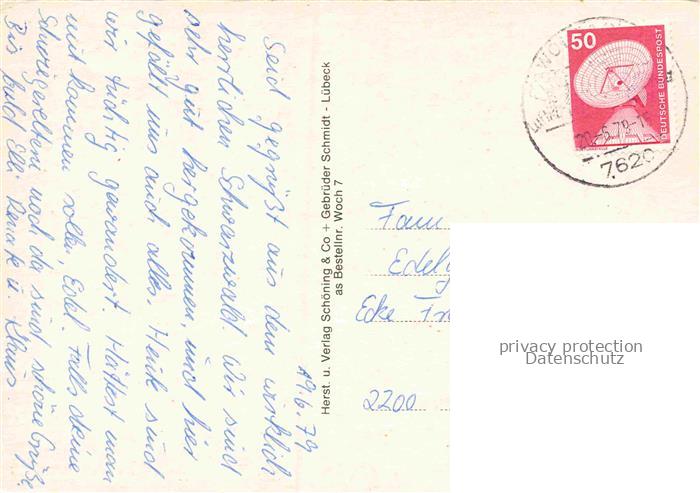 19.6.79
Seid gegrüßt aus dem wirklich
herrlichen Schwarzwald. Wir sind
sehr gut hergekommen, und hier
gefällt uns auch alles. Heute sind
wir tüchtig gewandert. Hättest man
mit kommen sollen, Edel. Falls deine
Schwiegereltern noch da sind schöne Grüße
Bis bald Eure u. Klaus.
Herst. u. Verlag Schöning & Co + Gebrüder Schmidt - Lübeck
as Bestellnr. Woch 7
50
DEUTSCHE BUNDESPOST
20.-6.79
7620
Fam
Edel
Ecke
2200
privacy protection
Datenschutz